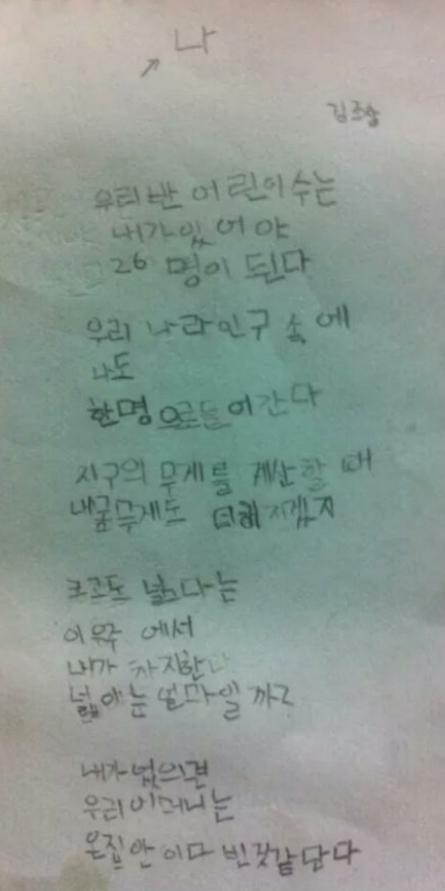 나
김조상
우리 반 어린이 수는
내가 있어야
26 명이 된다
우리 나라 인구 속에
나도
한명으로 들어간다
지구의 무게를 계산할 때
내 몸무게도 더해 지겠지
크고도 넓다는
이 우주 에서
내가 차지한다
넓이는 얼마일 까?
내가 없으면
우리 어머니는
온집안 이 다 빈것같 단다